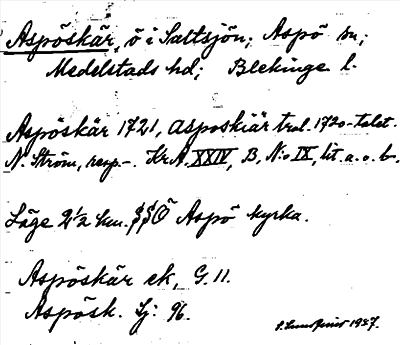 Aspöskär, ö i Saltsjön; Aspö sn;
Medelstads hd; Blekinge l.
Aspöskär 1721, Asposkiär trol. 1720-talet.
N. Ström, resp. – KrA. XXIV, B, N:o IX, lit a. o. b.
Läge 2 1/2 km. SSÖ Aspö kyrka.
Aspöskär ek, G. 11.
Aspösk. Sj: 96.
1937.